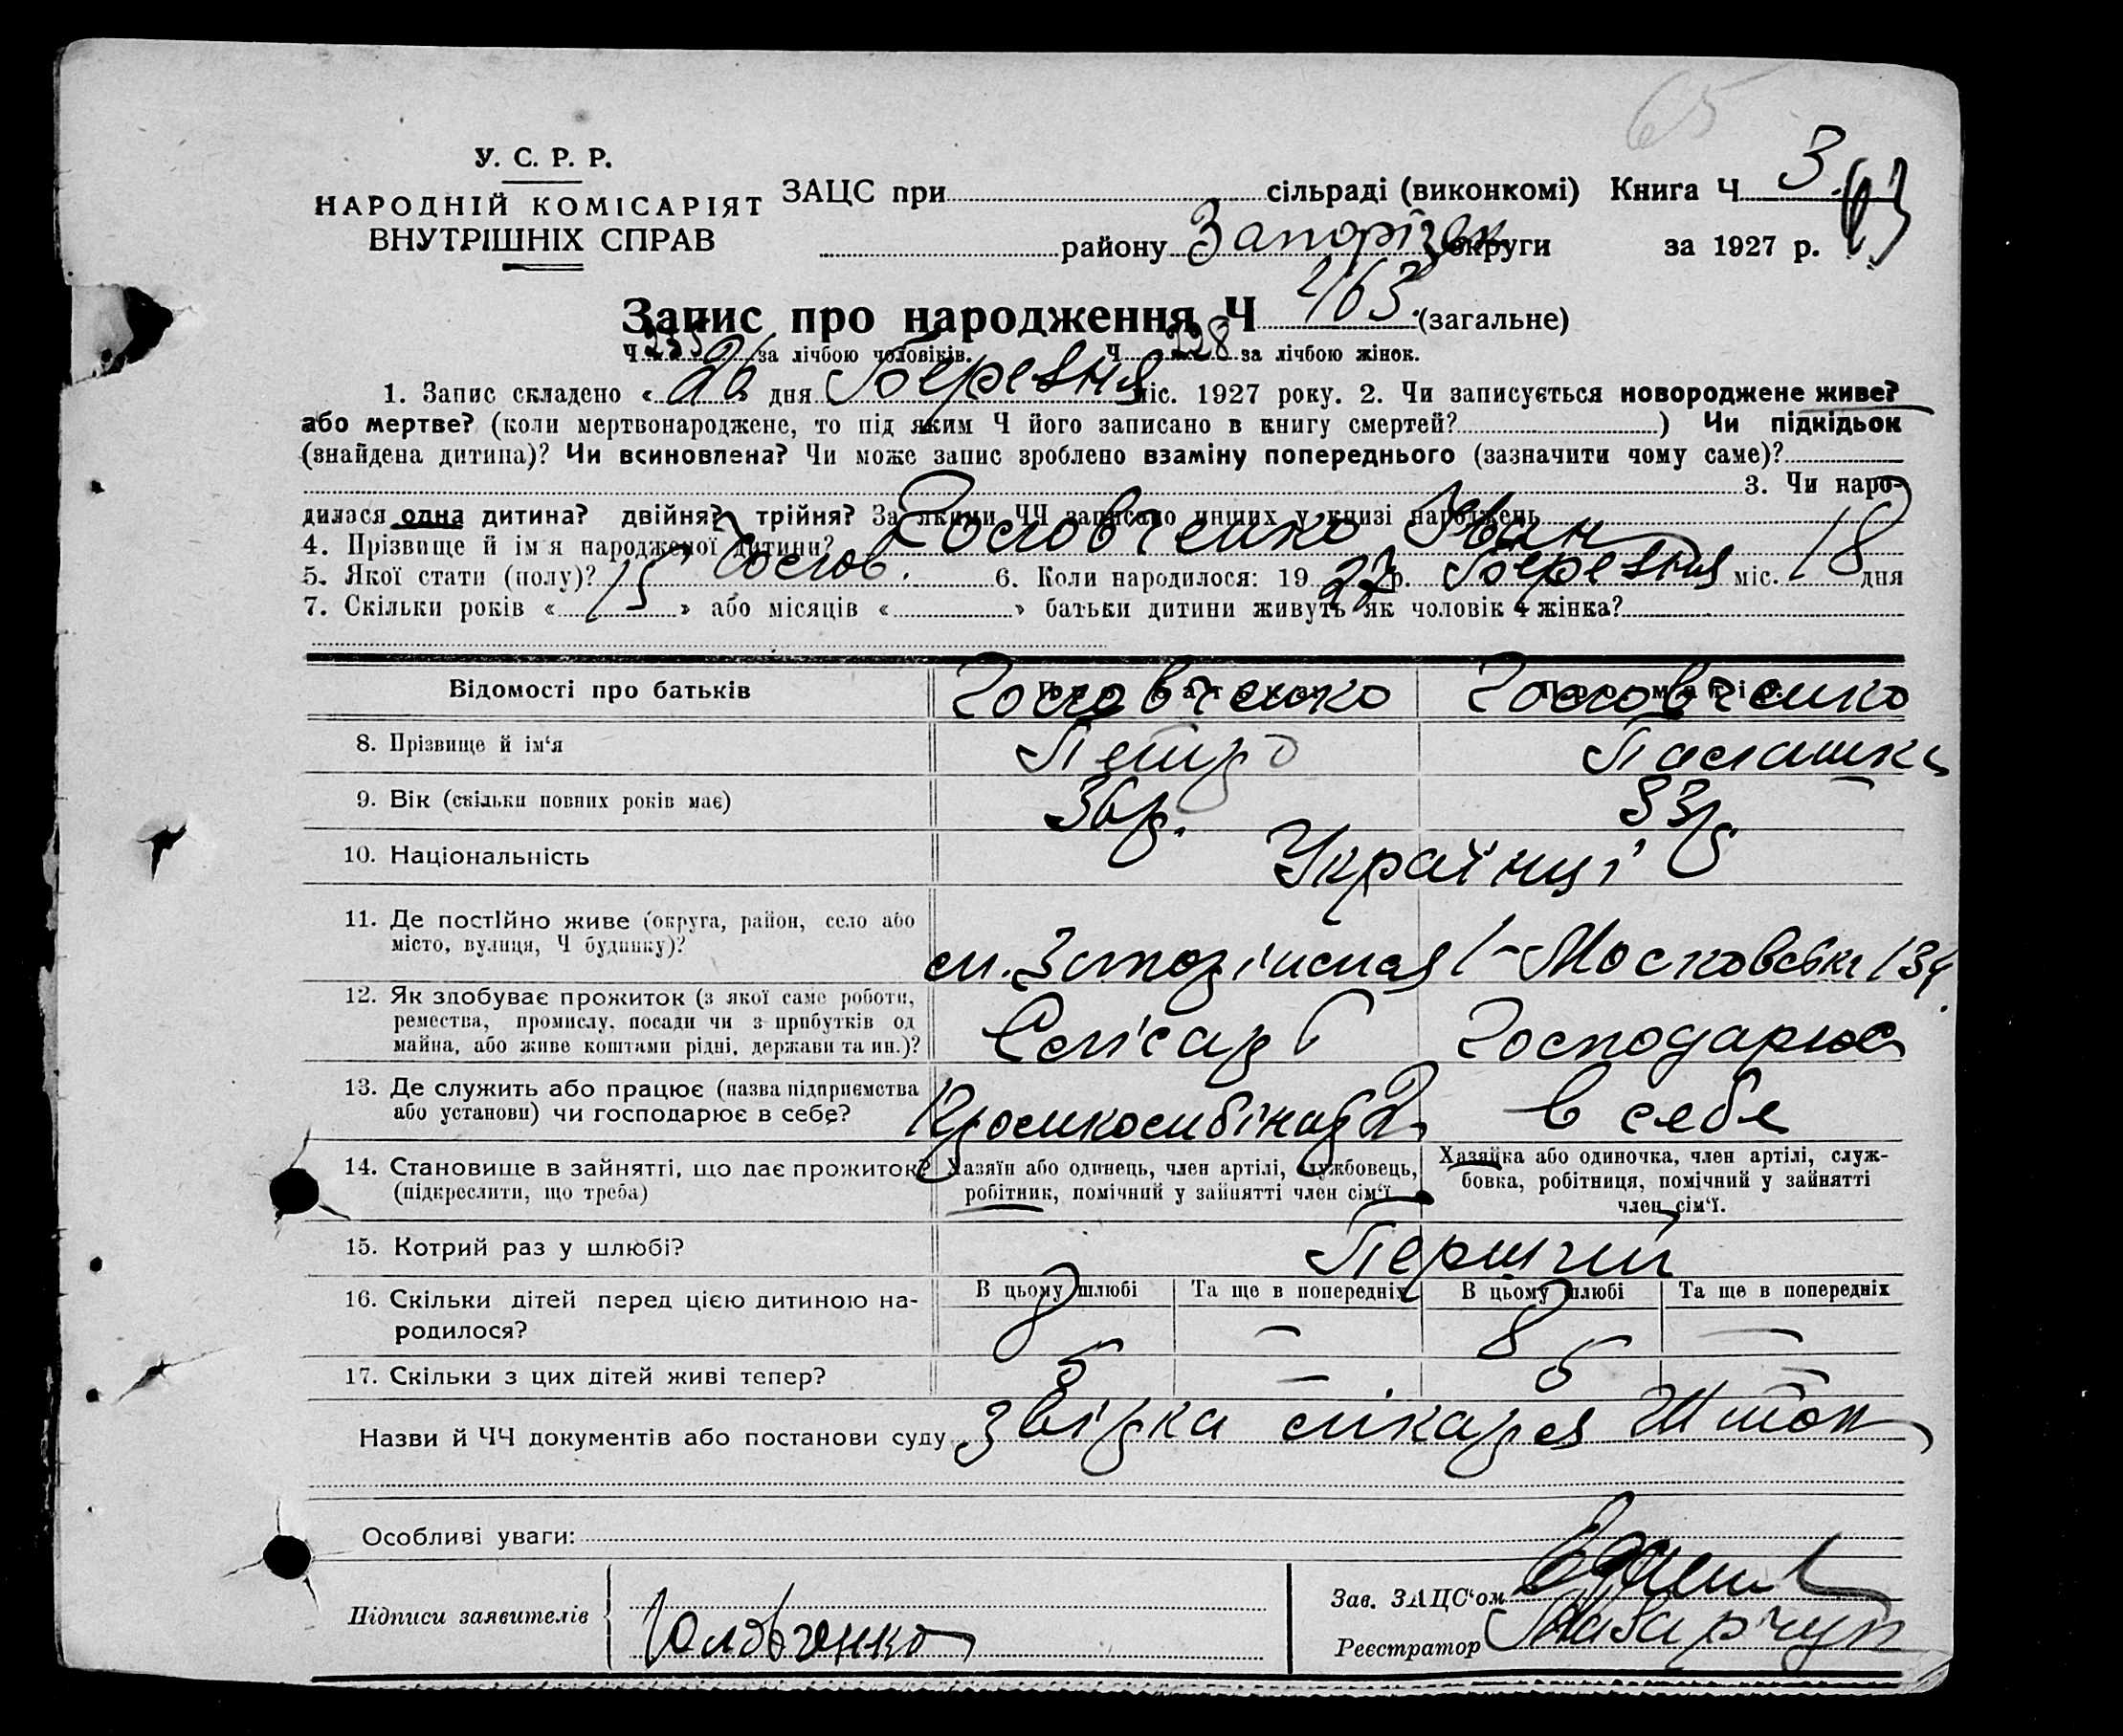 65
У. С. Р. Р.
НАРОДНІЙ КОМІСАРІЯТ
ВНУТРІШНІХ СПРАВ
ЗАЦС при сільраді (виконкомі) Книга Ч 3.
району Запорізьк округи за 1927 р.
Запис про народження Ч 463. (загальне)
Ч 235 за лічбою чоловіків. Ч 228 за лічбою жінок.
1. Запис складено « 26 дня Березня міс. 1927 року. 2. Чи записується новороджене живе?
або мертве? (коли мертвонароджене, то під яким Ч його записано в книгу смертей? ) Чи підкідьок
(знайдена дитина)? Чи всиновлена? Чи може запис зроблено взаміну попереднього (зазначити чому саме)?
3. Чи наро-
дилася одна дитина? двійня? трійня? За якими ЧЧ записано инших у книзі народжень
4. Прізвище й ім'я народженої дитини? Головченко Іван
5. Якої статі (полу)? Чолов. 6. Коли народилося: 1927 р. Березня міс. 18 дня
7. Скільки років « 15 » або місяців « » батьки дитини живуть як чоловік й жінка?
Відомості про батьків Головченко Головченко
8. Прізвище й ім'я Петро Палашка
9. Вік (скільки повних років має) 36 р. 33 р
10. Національність Українці
11. Де постІйно живе (округа, район, село або
місто, вулиця, Ч будинку)? м. Запоріжжя 1-Московська 134
12. Як здобуває прожиток (з якої саме роботи,
ремества, промислу, посади чи з прибутків од
майна, або живе коштами рідні, держави та ин.)? Слісар Господарює
13. Де служить або працює (назва підприємства
або установи) чи господарює в себе? в себе
14. Становище в зайнятті, що дає прожиток?
(підкреслити, що треба)
Хазяїн або одинець, член артілі, службовець,
робітник, помічний у зайнятті член сім'ї
Хазяйка або одиночка, член артілі, служ-
бовка, робітниця, помічний у зайнятті
член сім'ї.
15. Котрий раз у шлюбі? Перший
В цьому шлюбі Та ще в попередніх В цьому шлюбі Та ще в попередніх
16. Скільки дітей перед цією дитиною на-
родилося? 8 — 8 —
17. Скільки з цих дітей живі тепер? 5 — 5 —
Назви й ЧЧ документів або постанови суду звірка лікаря
Особливі уваги:
Підписи заявителів Головченко
Зав. ЗАЦС'ом
Реєстратор